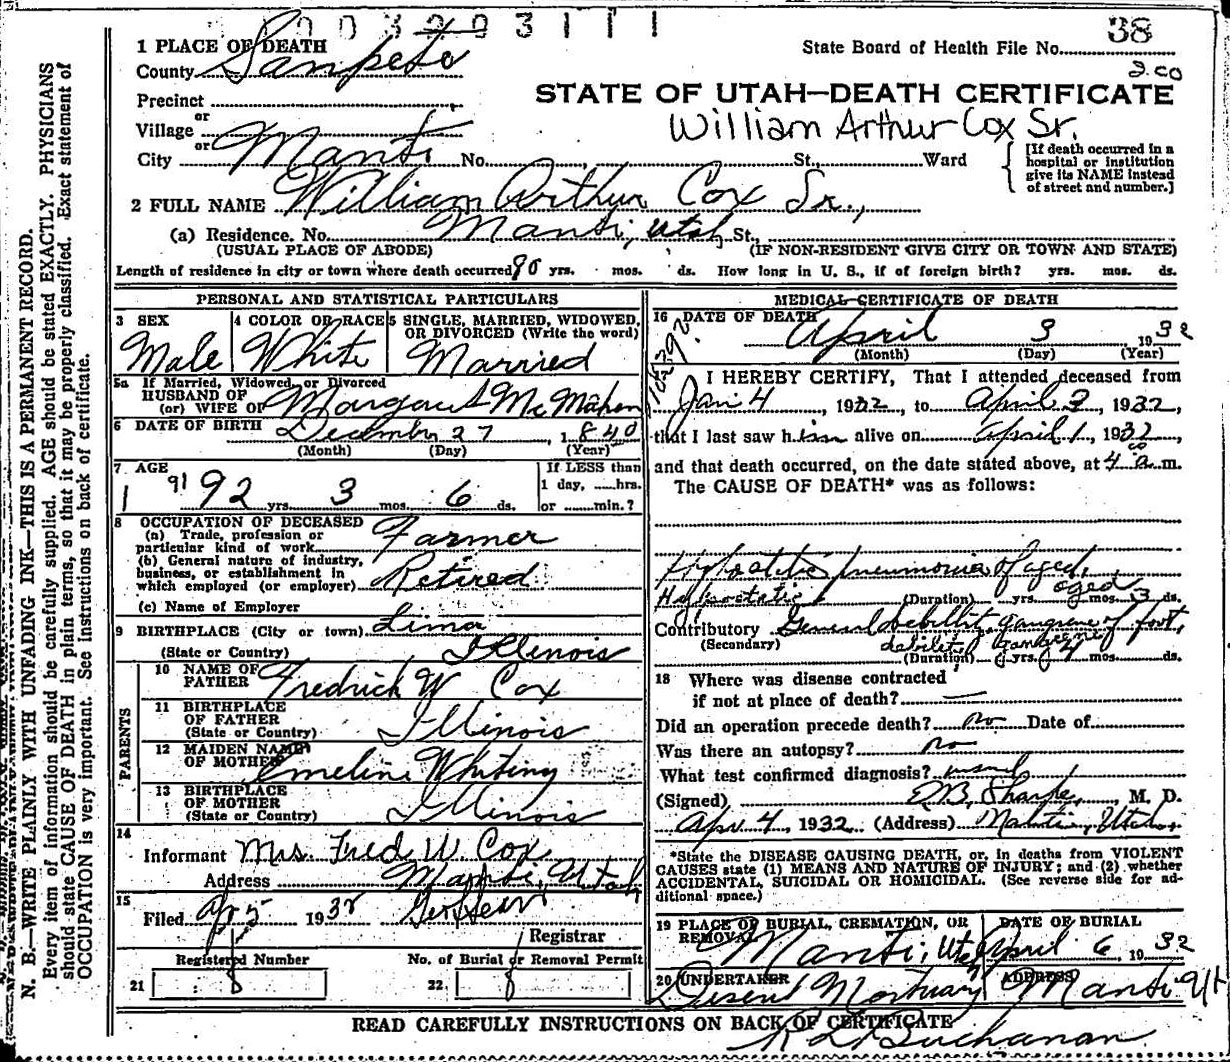 003203111
38
1 PLACE OF DEATH
State Board of Health File No.
County Sanpete
2.00
STATE OF UTAH—DEATH CERTIFICATE
Precinct
or
William Arthur Cox Sr.
Village
or
City Manti No. , St., Ward
[If death occurred in a hospital or institution give its NAME instead of street and number.]
2 FULL NAME William Arthur Cox Sr.,
(a) Residence. No. Manti, Utah St.,
(USUAL PLACE OF ABODE) (IF NON-RESIDENT GIVE CITY OR TOWN AND STATE)
Length of residence in city or town where death occurred 90 yrs. mos. ds. How long in U. S., if of foreign birth? yrs. mos. ds.
PERSONAL AND STATISTICAL PARTICULARS
3 SEX 4 COLOR OR RACE 5 SINGLE, MARRIED, WIDOWED, OR DIVORCED (Write the word)
Male White Married
5a If Married, Widowed, or Divorced
HUSBAND OF
(or) WIFE OF Margaret McMahen
6 DATE OF BIRTH December 27, 1840
(Month) (Day) (Year)
7 AGE
If LESS than
1 day, ......hrs.
or ......min.?
91 92 yrs. 3 mos. 6 ds.
8 OCCUPATION OF DECEASED
(a) Trade, profession or
particular kind of work Farmer
(b) General nature of industry,
business, or establishment in
which employed (or employer) Retired
(c) Name of Employer
9 BIRTHPLACE (City or town) Lima
(State or Country) Illinois
PARENTS
10 NAME OF
FATHER Fredrick W Cox
11 BIRTHPLACE
OF FATHER
(State or Country) Illinois
12 MAIDEN NAME
OF MOTHER Emeline Whiting
13 BIRTHPLACE
OF MOTHER
(State or Country) Illinois
14
Informant Mrs. Fred W Cox
Address Manti, Utah
15
Filed Apr 5 1932
Registrar
Registered Number No. of Burial or Removal Permit
21 8 22 8
MEDICAL CERTIFICATE OF DEATH
16 DATE OF DEATH April 3 1932
(Month) (Day) (Year)
I HEREBY CERTIFY, That I attended deceased from
Jan 4, 1932, to April 3, 1932,
that I last saw him alive on April 1, 1932
and that death occurred, on the date stated above, at 4 a. m.
The CAUSE OF DEATH* was as follows:
Hypostatic pneumonia of aged,
Hypostatic aged
(Duration) yrs. mos. 3 ds.
Contributory General debility, gangrene of foot,
(Secondary) debility Gangrene
(Duration) yrs. 4 mos. ds.
18 Where was disease contracted
if not at place of death?
Did an operation precede death? no Date of
Was there an autopsy? no
What test confirmed diagnosis? usual
(Signed) Sharpe, M. D.
Apr 4, 1932 (Address) Manti, Utah.
*State the DISEASE CAUSING DEATH, or, in deaths from VIOLENT
CAUSES state (1) MEANS AND NATURE OF INJURY; and (2) whether
ACCIDENTAL, SUICIDAL OR HOMICIDAL. (See reverse side for additional space.)
19 PLACE OF BURIAL, CREMATION, OR REMOVAL DATE OF BURIAL
Manti, Utah April 6, 1932
20 UNDERTAKER ADDRESS
Deseret Mortuary Manti Ut
READ CAREFULLY INSTRUCTIONS ON BACK OF CERTIFICATE
Buchanan
N. B.—WRITE PLAINLY WITH UNFADING INK—THIS IS A PERMANENT RECORD.
Every item of information should be carefully supplied. AGE should be stated EXACTLY. PHYSICIANS
should state CAUSE OF DEATH in plain terms, so that it may be properly classified. Exact statement of
OCCUPATION is very important. See instructions on back of certificate.